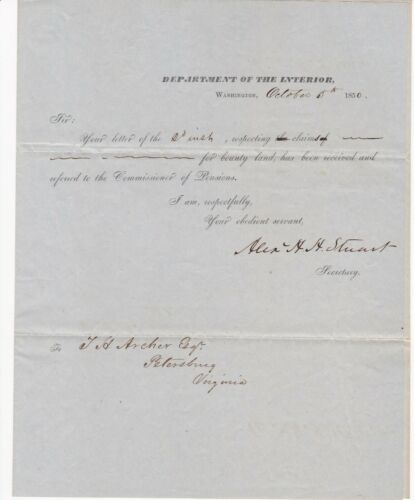 DEPARTMENT OF THE INTERIOR,
WASHINGTON, October 5th 1850.
Sir:
Your letter of the 2d inst, respecting the claims of
for bounty land, has been received and
referred to the Commissioner of Pensions.
I am, respectfully,
Your obedient servant,
Alex H. H. Stuart
Secretary.
To T A Archer Esqr.
Petersburg
Virginia